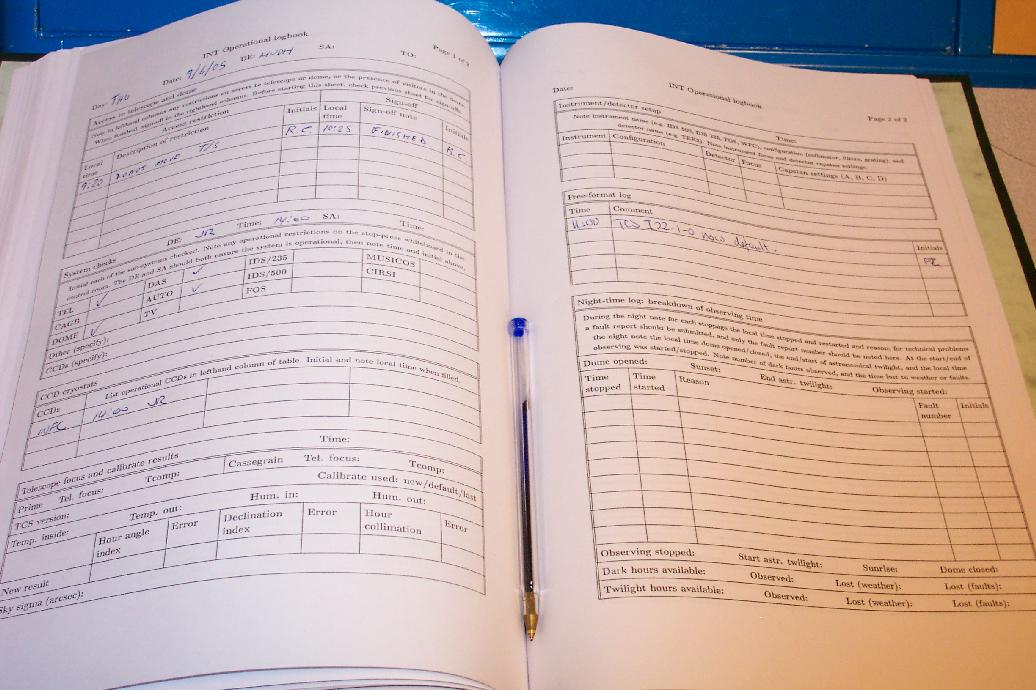 INT Operational logbook
Page 1 of 2
Day: THU Date: 9/6/05 DE: SA: TO:
Access to telescope and dome
Note in lefthand columns any restrictions on access to telescope or dome, or the presence of visitors in the dome.
When finished signoff in the righthand columns. Before starting this sheet, check previous sheet for sign-offs.
Access restriction Signoff
Local time Description of restriction Initials Local time Sign-off note Initials
9:20 DO NOT MOVE T/S R.C 10:25 FINISHED R.C
DE: JR Time: 14:00 SA: Time:
System checks
Initial each of the sub-systems checked. Note any operational restrictions on the stop-press whiteboard in the
control room. The DE and SA should both ensure the system is operational, then note time and initial above.
TEL ✓ DAS ✓ IDS/235 MUSICOS
CAGB AUTO ✓ IDS/500 CIRSI
DOME ✓ TV FOS
Other (specify):
CCDs (specify):
CCD cryostats
List operational CCDs in lefthand column of table. Initial and note local time when filled.
CCDs
WFC 14:00 JR
Time:
Telescope focus and calibrate results
Prime Tel. focus: Tcomp: Cassegrain Tel. focus: Tcomp:
TCS version: Calibrate used: new/default/last
Temp. inside: Temp. out: Hum. in: Hum. out:
Hour angle index Error Declination index Error Hour collimation Error
New result
Sky sigma (arcsec):
Date:
INT Operational logbook
Page 2 of 2
Instrument/detector setup
Time:
Note instrument name (e.g. IDS 500, IDS 235, FOS, WFC), configuration (collimator, filters, grating), and
detector name (e.g. TEK5). Note instrument focus and detector capstan settings.
Instrument Configuration Detector Focus Capstan settings (A, B, C, D)
Free-format log
Time Comment Initials
11:00 TCS T22-1-0 now default.
Night-time log: breakdown of observing time
During the night note for each stoppage the local time stopped and restarted and reason; for technical problems
a fault report should be submitted, and only the fault report number should be noted here. At the start/end of
the night note the local time dome opened/closed, the end/start of astronomical twilight, and the local time
observing was started/stopped. Note number of dark hours observed, and the time lost to weather or faults.
Dome opened: Sunset: End astr. twilight: Observing started:
Time stopped Time started Reason Fault number Initials
Observing stopped: Start astr. twilight: Sunrise: Dome closed:
Dark hours available: Observed: Lost (weather): Lost (faults):
Twilight hours available: Observed: Lost (weather): Lost (faults):